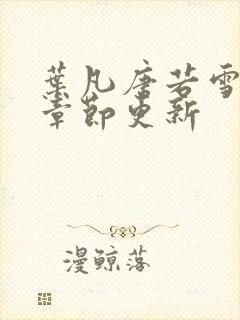 葉凡唐若雪
章節更新
漫鲸落